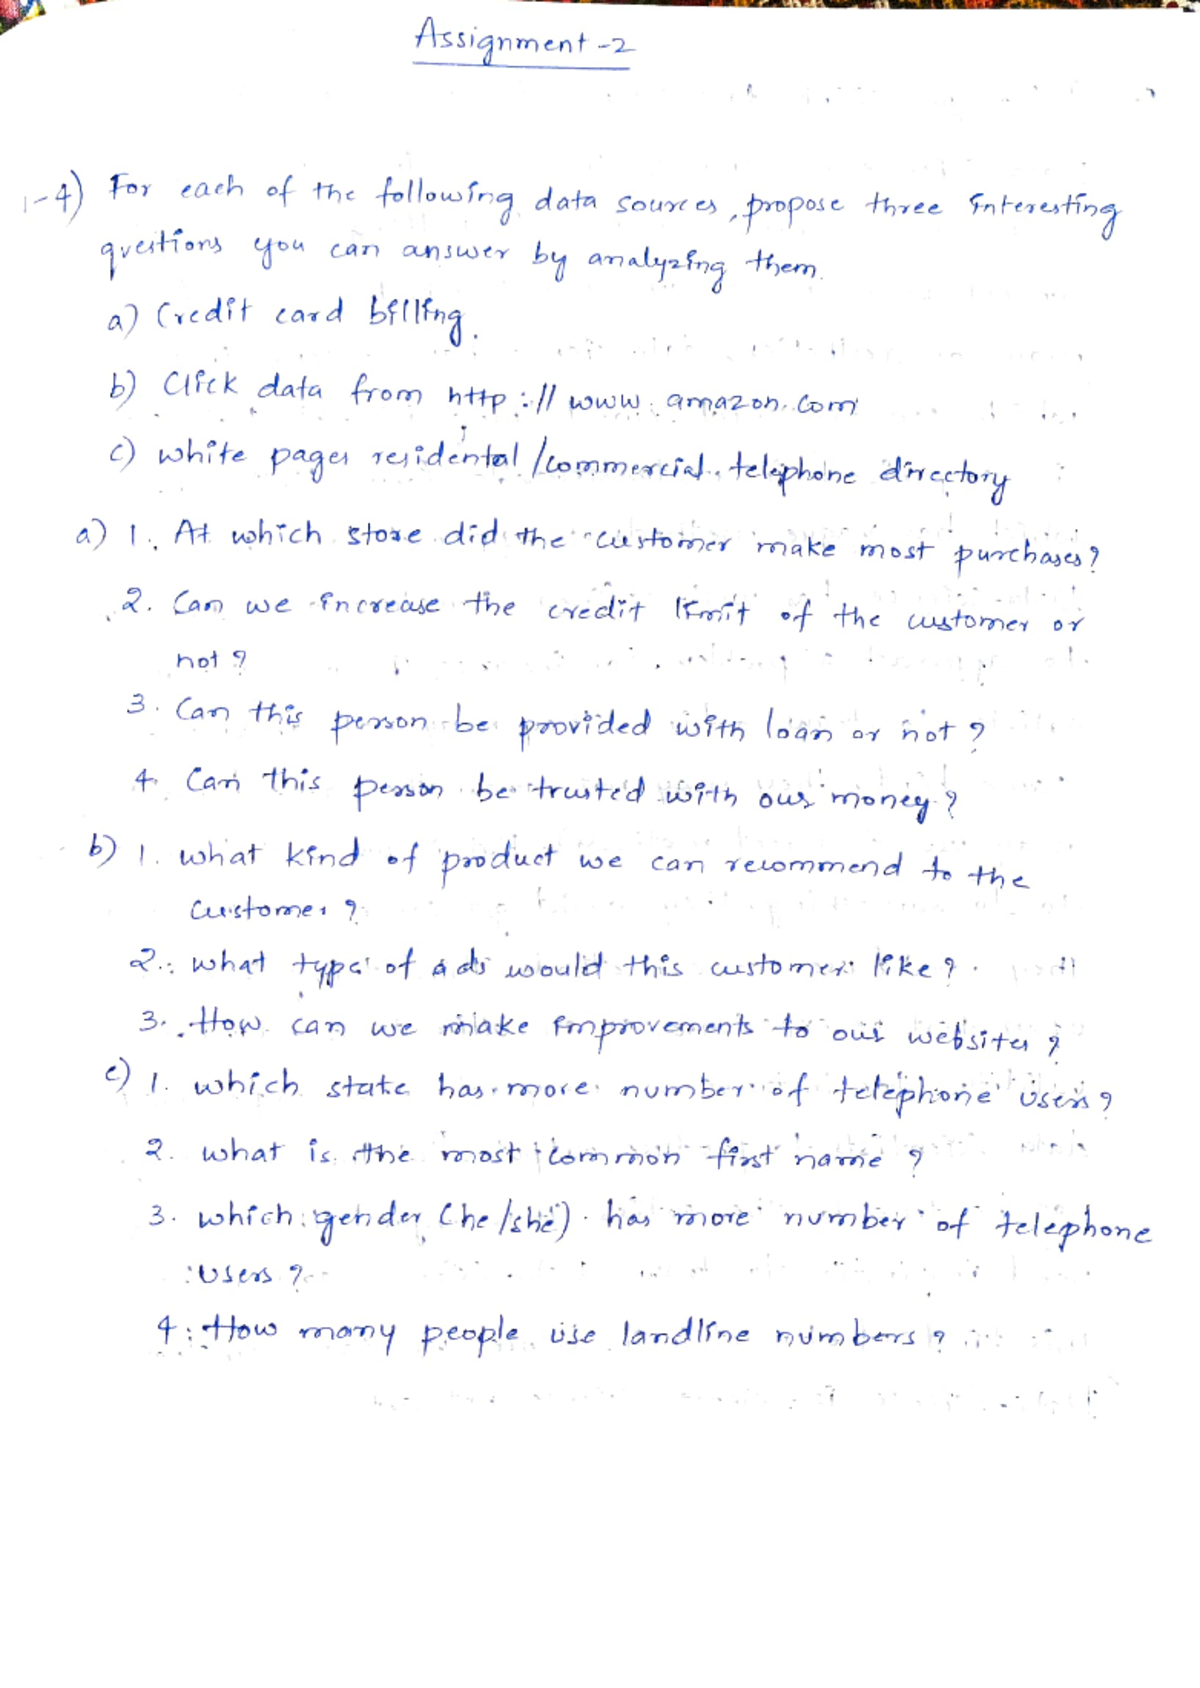 Assignment-2
1-4) For each of the following data sources, propose three interesting
questions you can answer by analyzing them.
a) Credit card billing.
b) Click data from http://www.amazon.com
c) white pages residental/commercial telephone directory
a) 1. At which store did the customer make most purchases?
2. Can we increase the credit limit of the customer or
not?
3. Can this person be provided with loan or not?
4. Can this person be trusted with our money?
b) 1. what kind of product we can recommend to the
customer?
2. what type of ads would this customer like?
3. How can we make improvements to our websites?
c) 1. which state has more number of telephone users?
2. what is the most common first name?
3. which gender (he/she) has more number of telephone
users?
4. How many people use landline numbers?